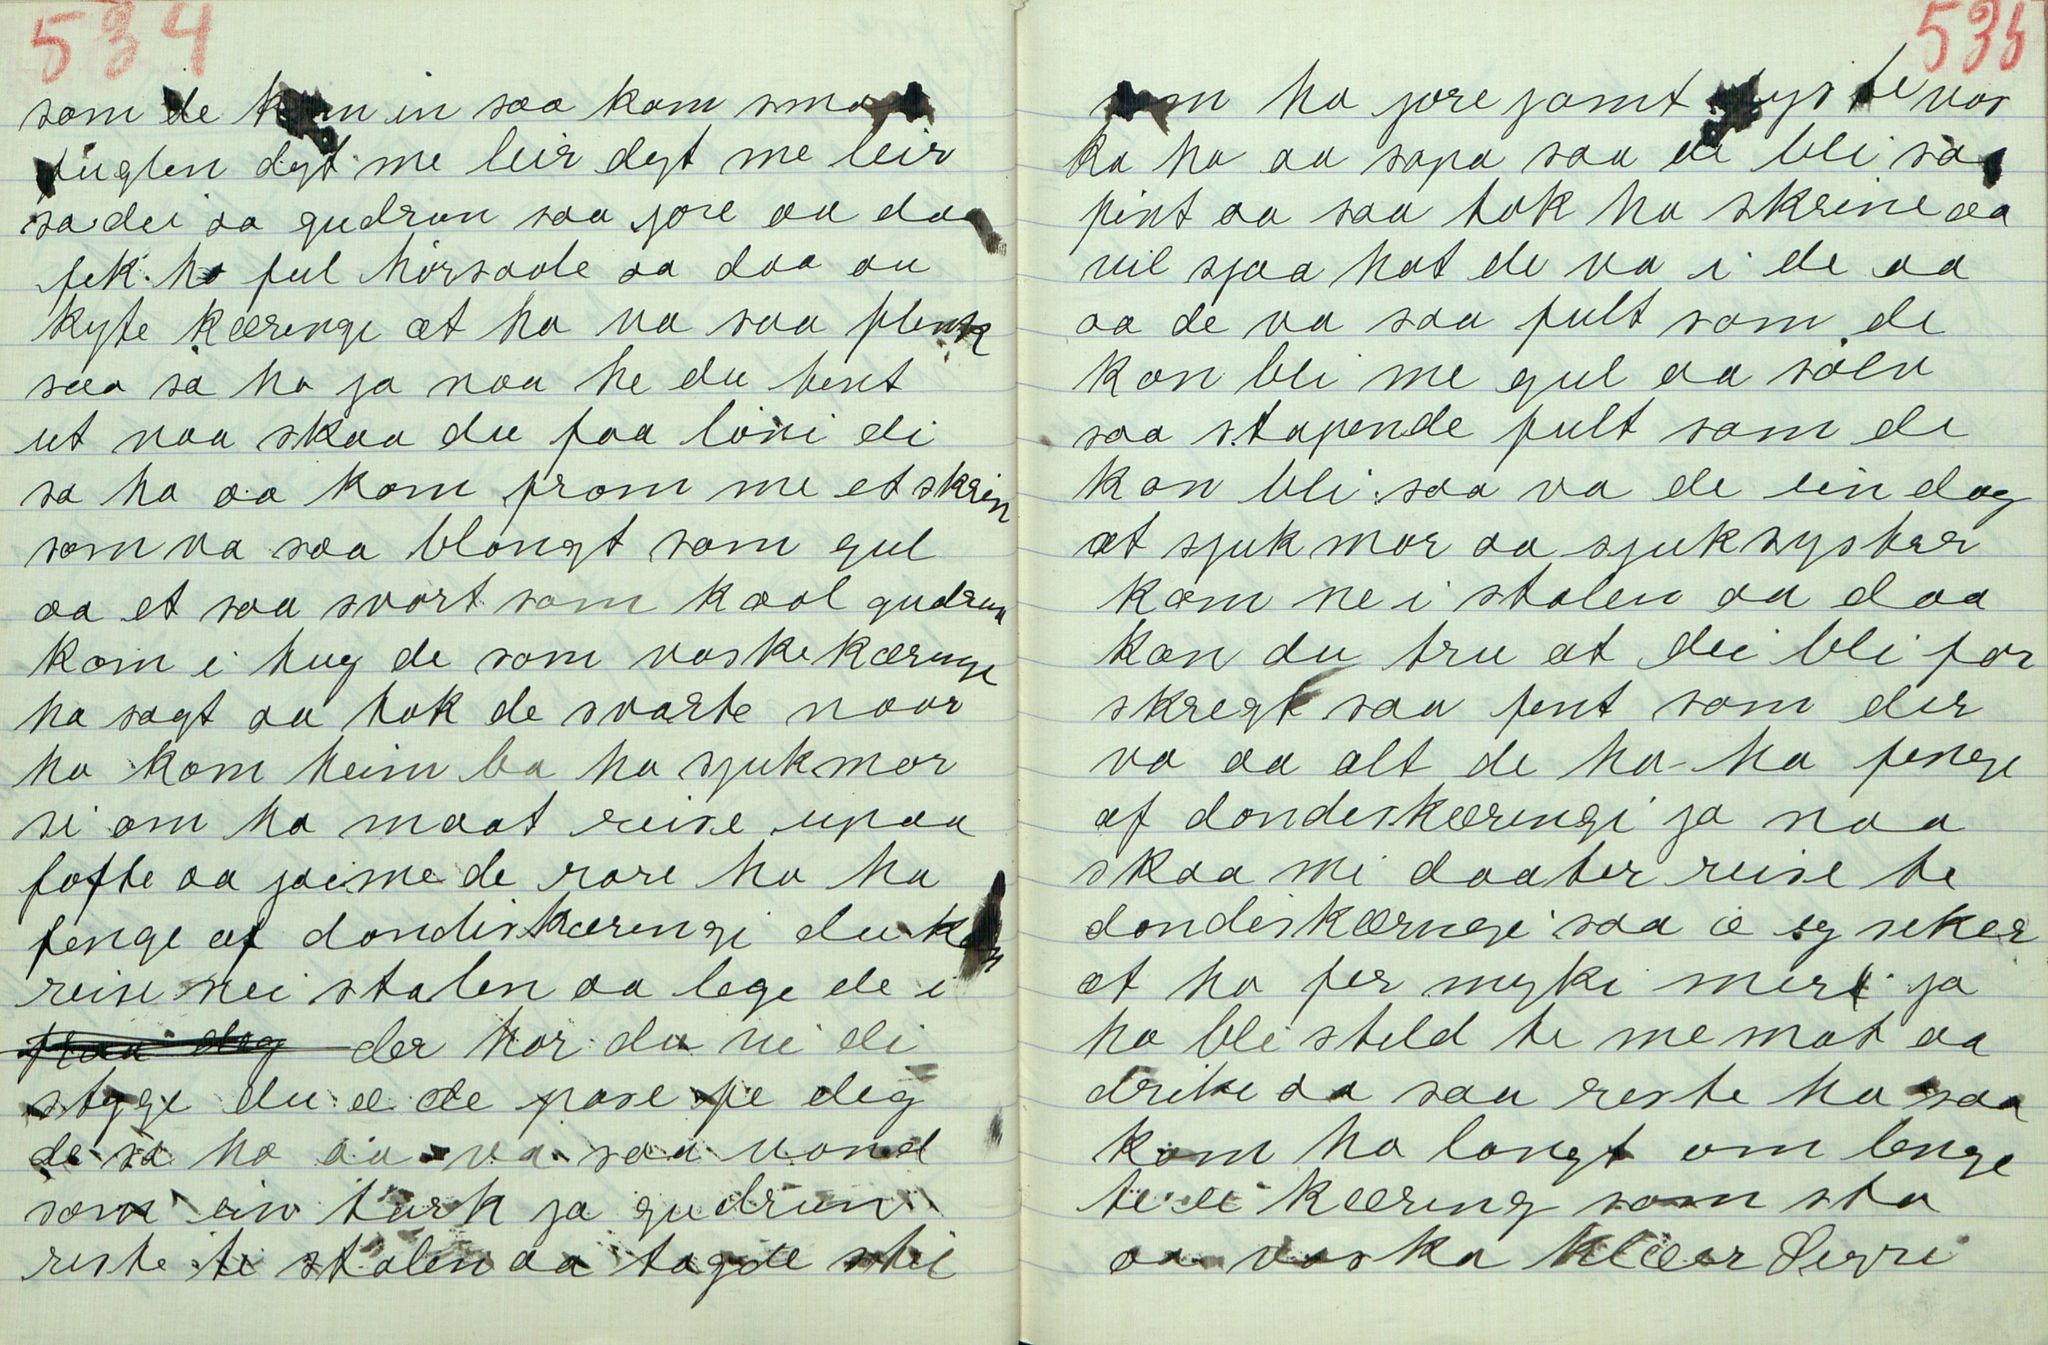 534
som de kom in saa kom smaa
fuglen dygt me leir dygt me leir
sa dei aa gudrun saa jore aa daa
fek ho ful hörsaale aa daa au
kyte kæringi at ho va saa flink
saa sa ho ja naa he du tent
ut naa skaa du faa löni di
sa ho aa kom from me et skrin
som va saa blongt som gul
aa et saa svort som kaal gudrun
kom i hug de som vaskekæringe
ha sagt aa tok de svarte naar
ho kom heim ba ho sjukmor
si om ho maat reise upaa
lofte aa jaime de rare ho ha
fenge af dondeskæringi du kan
reise nei stalen aa lege de i
der hör du ni di
stygge du æ de pase fe deg
de sa ho aa va saa vond
som ein turk ja gudrun
reste te stalen aa tagde stil
535
som ho jore jamt lys te vos
ka ho aa sopa saa de bli saa
pint aa saa tok ho skrine aa
vil sjaa hot de va i de aa
aa de va saa fult som de
kon bli me gul aa sölv
saa stapende fult som de
kon bli saa va de ein dag
at sjukmor aa sjuksyster
kom ne i stalen aa daa
kan du tru at dei bli for
skregt saa fent som der
va aa alt de ho ha fenge
af dondeskæringi ja naa
skaa mi daater reise te
dondeskæringe saa æ eg seker
at ho fer myki meir ja
ho bli steld te me mat aa
drike aa saa reste ho saa
kom ho langt om lenge
te ei kæring som sto
aa vaska klæar Servi